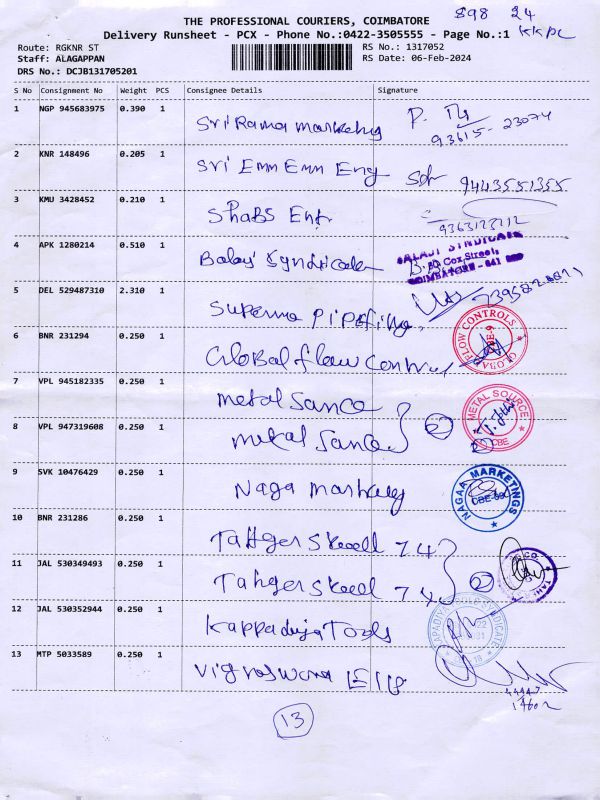 898 24
KKPL
THE PROFESSIONAL COURIERS, COIMBATORE
Delivery Runsheet - PCX - Phone No.:0422-3505555 - Page No.:1
Route: RGKNR ST RS No.: 1317052
Staff: ALAGAPPAN RS Date: 06-Feb-2024
DRS No.: DCJB131705201
S No Consignment No Weight PCS Consignee Details Signature
1 NGP 945683975 0.390 1 Sri Rama Marketing 93615-23074
2 KNR 148496 0.205 1 Sri Emm Emm Eng 9443551355
3 KMU 3428452 0.210 1 Shabs Ent
4 APK 1280214 0.510 1 Balaji Syndicate BALAJI SYNDICATE
Cox Street,
COIMBATORE - 641
5 DEL 529487310 2.310 1 Suprema
6 BNR 231294 0.250 1 Global flow control GLOBAL FLOW CONTROLS CBE-9
7 VPL 945182335 0.250 1 metal Sance
8 VPL 947319608 0.250 1 metal Sance 2 METAL SOURCE CBE
9 SVK 10476429 0.250 1 Naga Marketing NAGAA MARKETINGS
10 BNR 231286 0.250 1 74
11 JAL 530349493 0.250 1 74 2
12 JAL 530352944 0.250 1 Kappadiya Tools
13 MTP 5033589 0.250 1
13